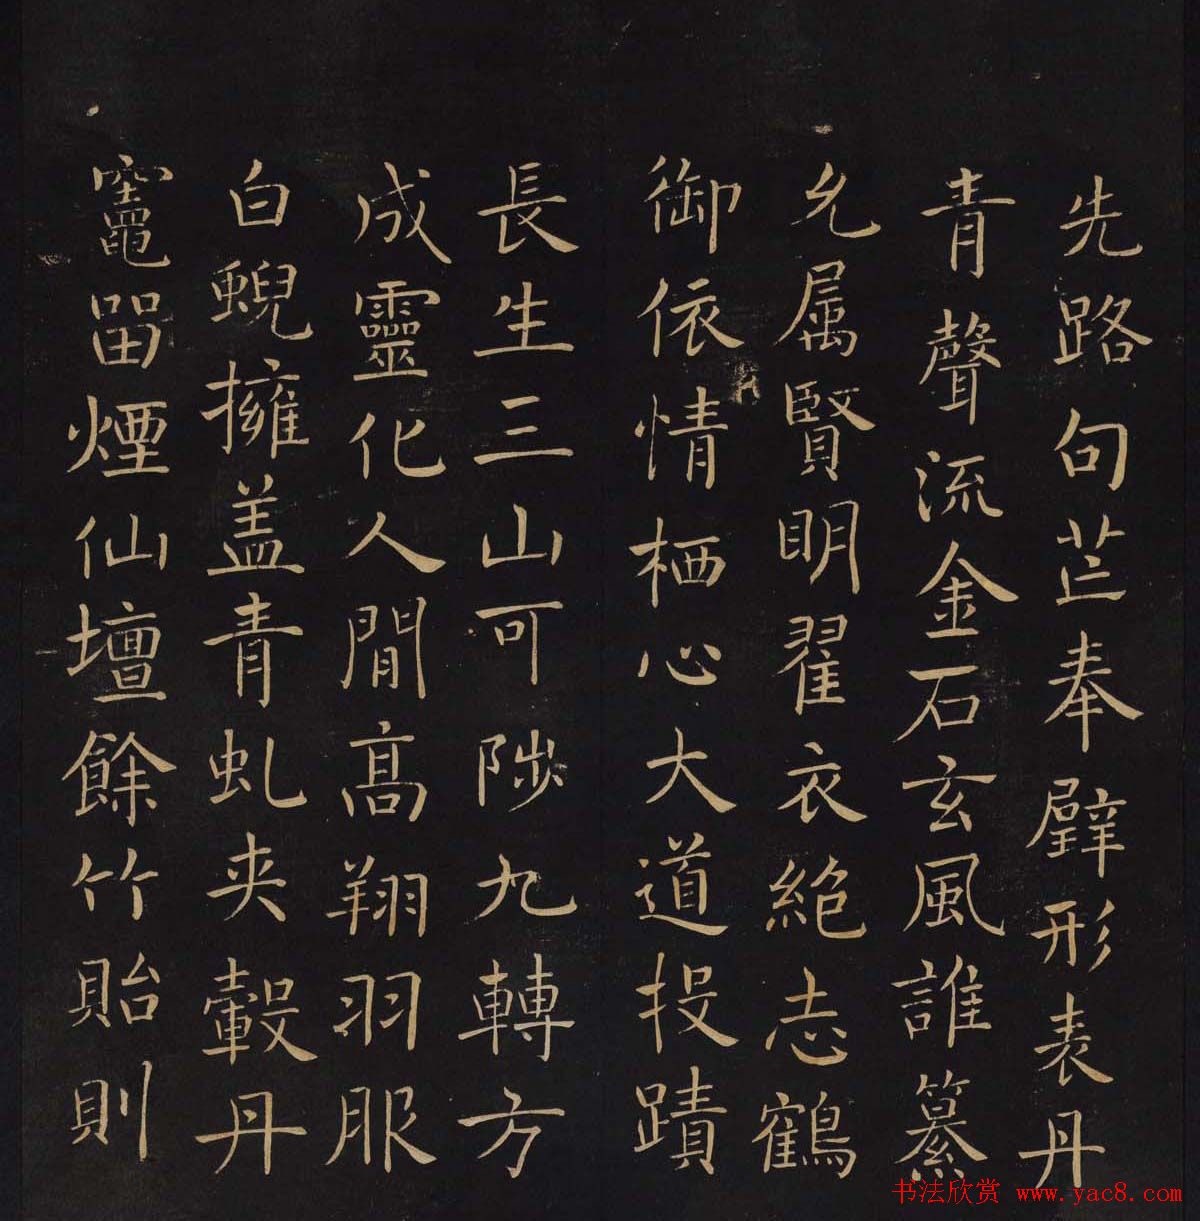 先路句芒奉辟形表丹
青聲流金石玄風誰纂
允属賢明翟衣絶志鶴
御依情栖心大道投蹟
長生三山可陟九轉方
成靈化人閒高翔羽服
白蜺擁盖青虬夾轂丹
竈留煙仙壇餘竹貽則
书法欣赏 www.yac8.com